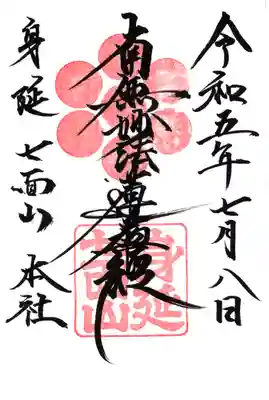 令和五年七月八日
南無妙法蓮華経
身延
七面山
身延 七面山 本社